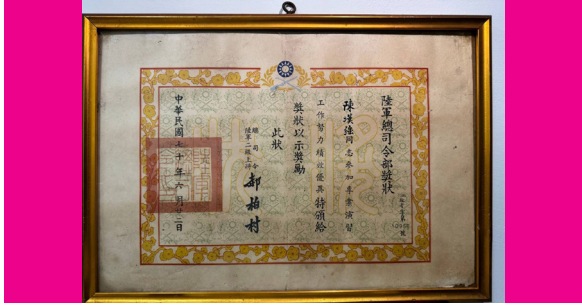 陸軍總司令部獎狀
陳漢同志參加演習
工作努力績效優異特頒給
獎狀以示獎勵
此狀
總司令
陸軍二級上將
郝柏村
中華民國七十年六月廿二日